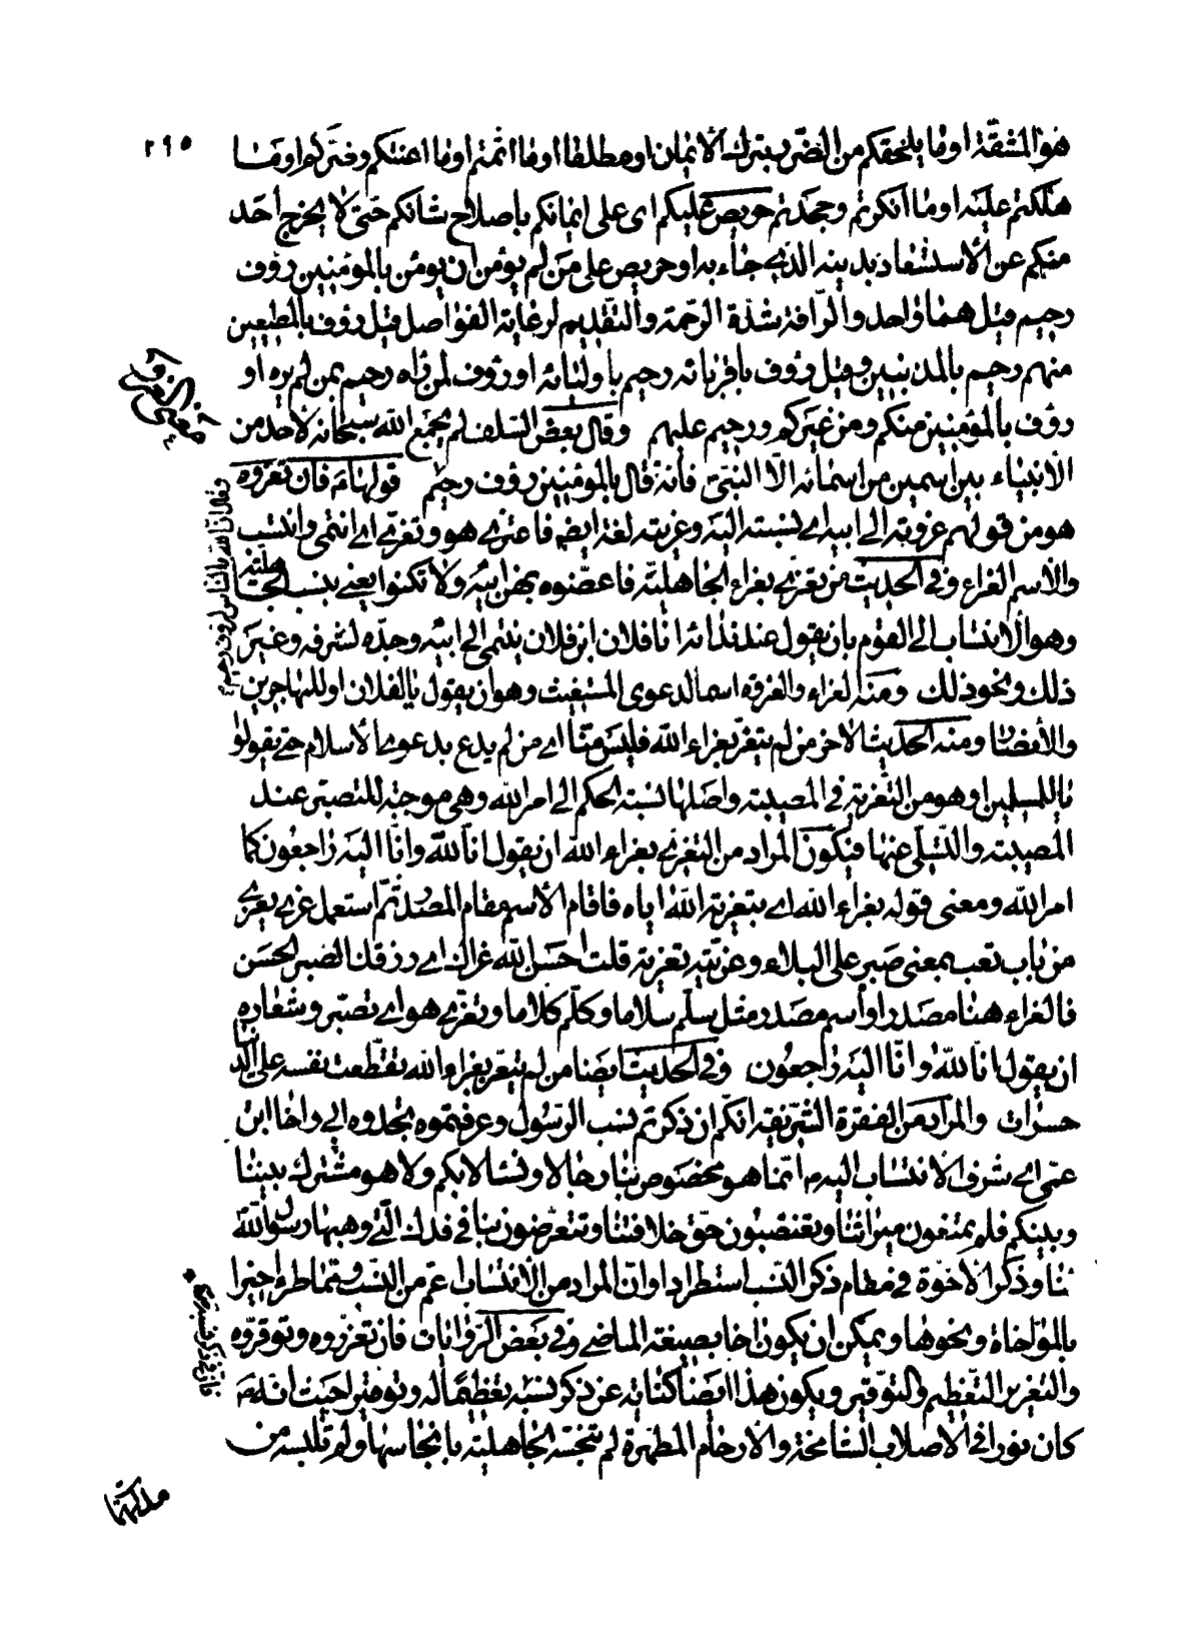 ٢٩٥
هو المشقّة او ما يلحقكم من الضّرر بترك الأيمان او مطلقا او ما اثمتم او ما اعنتكم وضرّكم او ما
هلكتم عليه او ما انكرتم وجحدتم حريص عليكم اى على ايمانكم باصلاح شانكم حتى لا يخرج أحد
منكم عن الأستسعاد بدينه الذى جاء به او حريص على من لم يؤمن ان يؤمن بالمؤمنين رؤف
رحيم قيل هما واحد والرّافة شدّة الرّحمة والتقديم لرعاية الفواصل وقيل رؤف بالمطيعين
منهم رحيم بالمذنبين وقيل رؤف باقربائه رحيم باوليائه او رؤف لمن راه رحيم بمن لم يره او
رؤف بالمؤمنين منكم ومن غيركم ورحيم عليهم وقال بعض السّلف لم يجمع الله سبحانه لاحد من
الأنبياء بين اسمين من اسمائه الّا النّبىّ فانّه قال بالمؤمنين رؤف رحيم قولها فان تعزوه
هو من قولهم عزوته الى ابيه اى نسبته اليه وعزيته لغة ايضا فاعتزى هو وتعزّى اى انتمى وانتسب
والأسم العزاء وفى الحديث من تعزّى بعزاء الجاهليّة فاعضّوه بهن ابيه ولا تكنوا يعنى بنسب الجاهليّة
وهو الانتساب الى القوم بان يقول عند ندائه انا فلان ابن فلان ينتمى الى ابيه وجدّه لشرفه وغير
ذلك ونحو ذلك ومنه العزاء والعزوة اسما لدعوى المستغيث وهو ان يقول يا لفلان او للمهاجرين
والأنصار ومنه الحديث الاخر من لم يتعزّ بعزاء الله فليس منّا اى من لم يدع بدعوى الأسلام حتى يقولوا
يا للمسلمين او هو من التّعزية فى المصيبة واصلها نسبة الحكم الى امر الله وهى موجبة للتصبّر عند
المصيبة والتّسلّى عنها فيكون المراد من التعزّى بعزاء الله ان يقول انّا للّه وانّا اليه راجعون كما
امر الله ومعنى قوله بعزاء الله اى بتعزية الله اياه فاقام الأسم مقام المصدر ثمّ استعمل عزى يعزى
من باب تعب بمعنى صبر على البلاء وعزّيته تعزية قلت احسن الله عزاك اى رزقك الصبر الحسن
فالعزاء هنا مصدر او اسم مصدر مثل سلّم سلاما وكلّم كلاما وتعزّى هو اى تصبّر وشعاره
ان يقول انّا للّه وانّا اليه راجعون وفى الحديث ايضا من لم يتعزّ بعزاء الله تقطّعت نفسه على الدّنيا
حسرات والمراد من الفقرة الشّريفة انّكم ان ذكرتم نسب الرّسول وعرفتموه تجدوه ابى واخا ابن
عمّى اى شرف الانتساب اليه انّما هو مخصوص بنا رجالا ونساء لا بكم ولا هو مشترك بيننا
وبينكم فلم تمنعون ميراثنا وتغتصبون حقّ خلافتنا وتتعرّضون بنا فى فدك الّتى وهبها رسول اللّه
لنا وذكر الأخوّة فى مقام ذكر النّسب استطرادا وانّ المراد من الأنتساب اعمّ من النّسب وممّا طرء اخيرا
بالمؤاخاة ونحوها ويمكن ان يكون اخا بصيغة الماضى وفى بعض الرّوايات فان تعزّروه وتوقّروه
والتعزير التعظيم والتّوقير ويكون هذا ايضا كناية عن ذكر نسبه تعظيما له وتوقيرا حيث انّه
كان نورا فى الأصلاب الشّامخة والأرحام المطهّرة لم تنجّسه الجاهليّة بانجاسها ولم تلبسه من
معنى العزوة
وقال انّ اللّه بالنّاس لرؤف رحيم
مدلهمّا